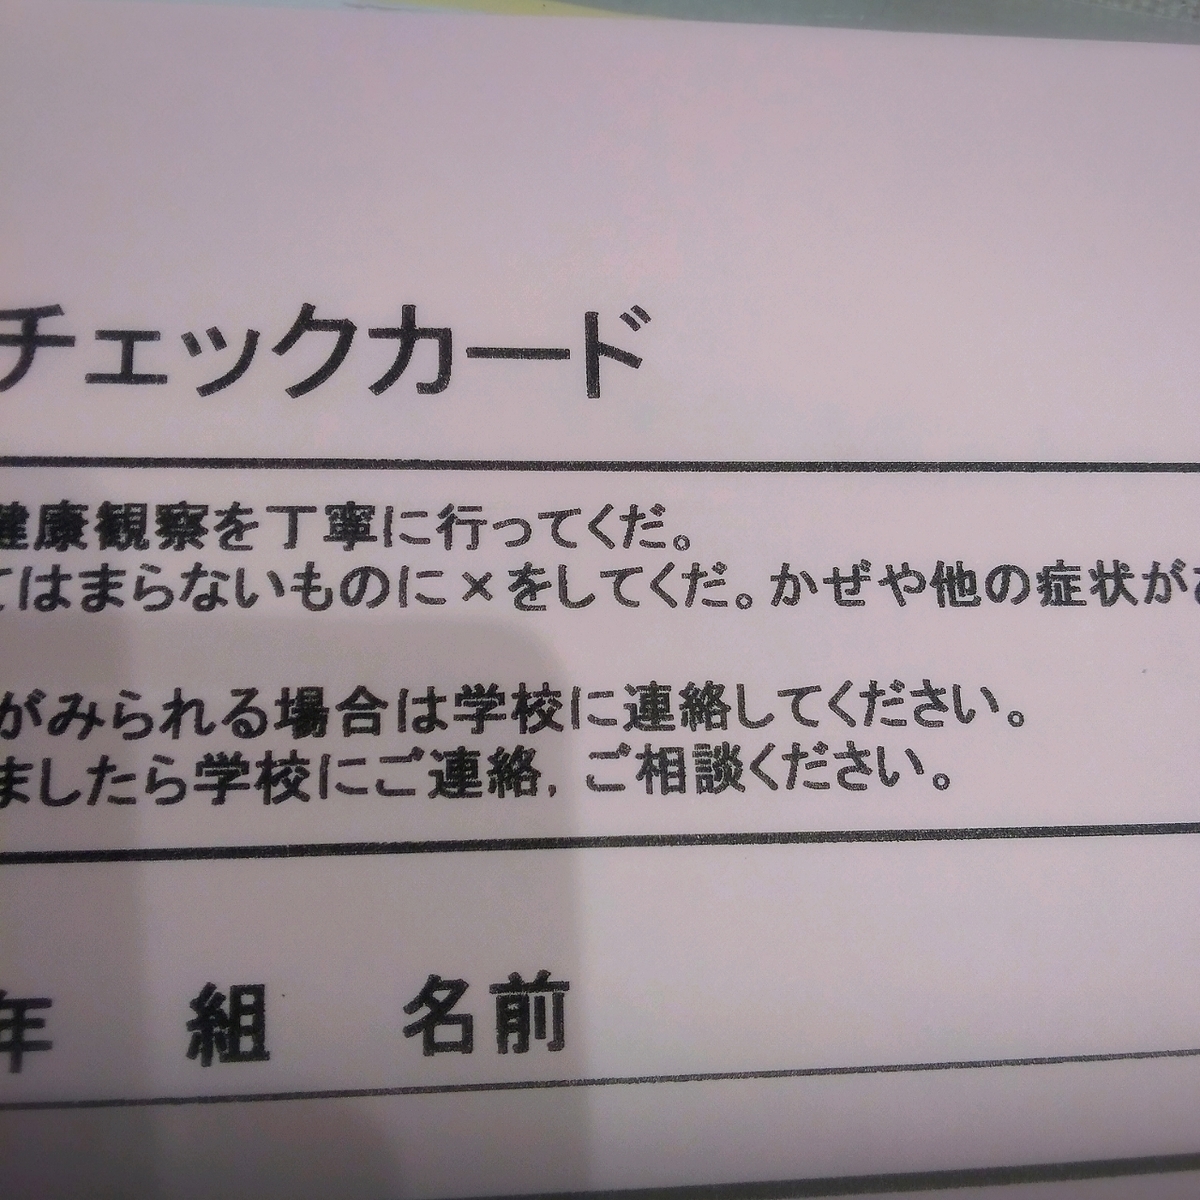 チェックカード
健康観察を丁寧に行ってくだ。
てはまらないものに×をしてくだ。かぜや他の症状が
がみられる場合は学校に連絡してください。
ましたら学校にご連絡，ご相談ください。
年 組 名前